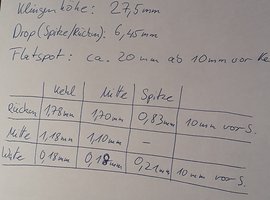 Klingenhöhe: 27,5mm
Drop (Spitze/Rücken): 6,45mm
Flatspot: ca. 20mm ab 10mm vor Ke
Kehl Mitte Spitze
Rücken 1,78mm 1,70mm 0,83mm 10mm vor S.
Mitte 1,18mm 1,10mm –
Wate 0,18mm 0,18mm 0,21mm 10mm vor S.